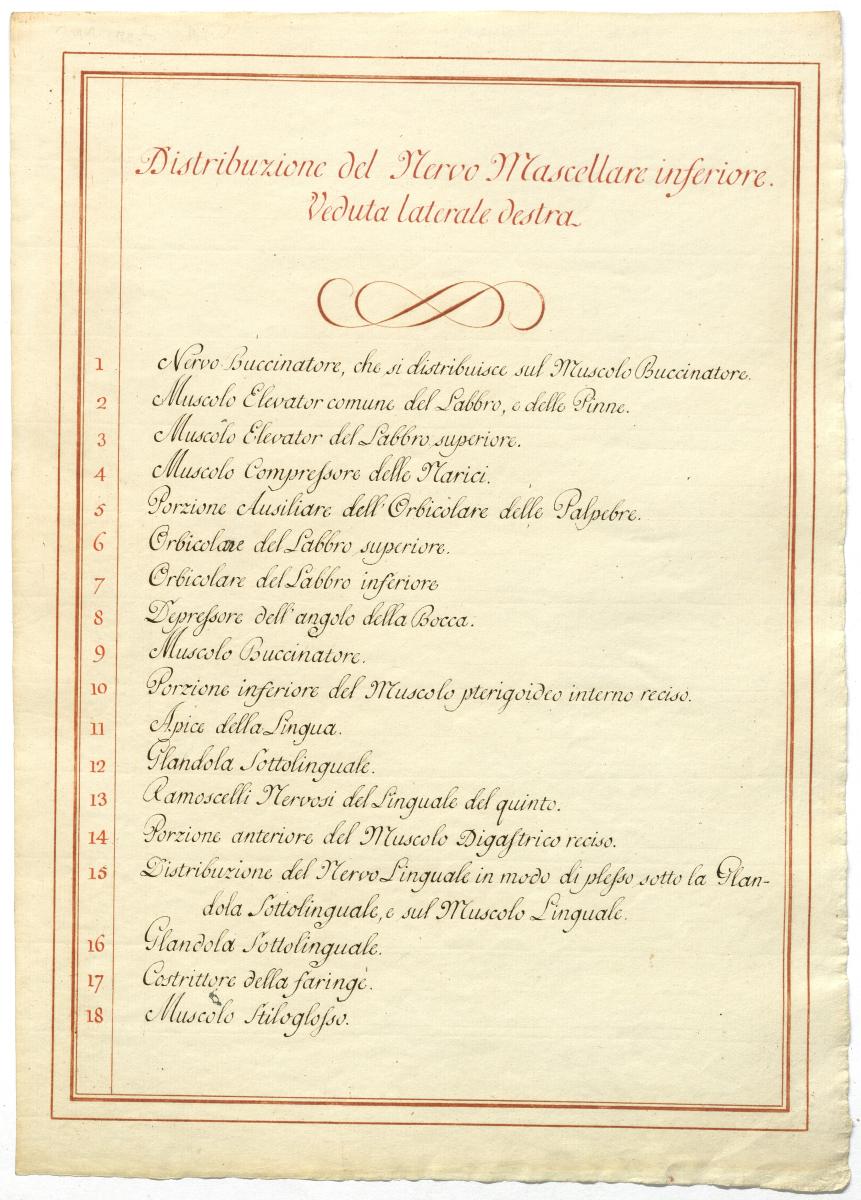 Distribuzione del Nervo Mascellare inferiore.
Veduta laterale destra
1 Nervo Buccinatore, che si distribuisce sul Muscolo Buccinatore.
2 Muscolo Elevator comune del Labbro, e delle Pinne.
3 Muscolo Elevator del Labbro superiore.
4 Muscolo Compreſsore delle Narici.
5 Porzione Ausiliare dell'Orbicolare delle Palpebre.
6 Orbicolare del Labbro superiore.
7 Orbicolare del Labbro inferiore
8 Depreſsore dell'angolo della Bocca.
9 Muscolo Buccinatore.
10 Porzione inferiore del Muscolo pterigoideo interno reciso.
11 Apice della Lingua.
12 Glandola Sottolinguale.
13 Ramoscelli Nervosi del Linguale del quinto.
14 Porzione anteriore del Muscolo Digaſtrico reciso.
15 Distribuzione del Nervo Linguale in modo di pleſso sotto la Glan-
dola Sottolinguale, e sul Muscolo Linguale.
16 Glandola Sottolinguale.
17 Costrittore della faringe.
18 Muscolo Stilogloſso.